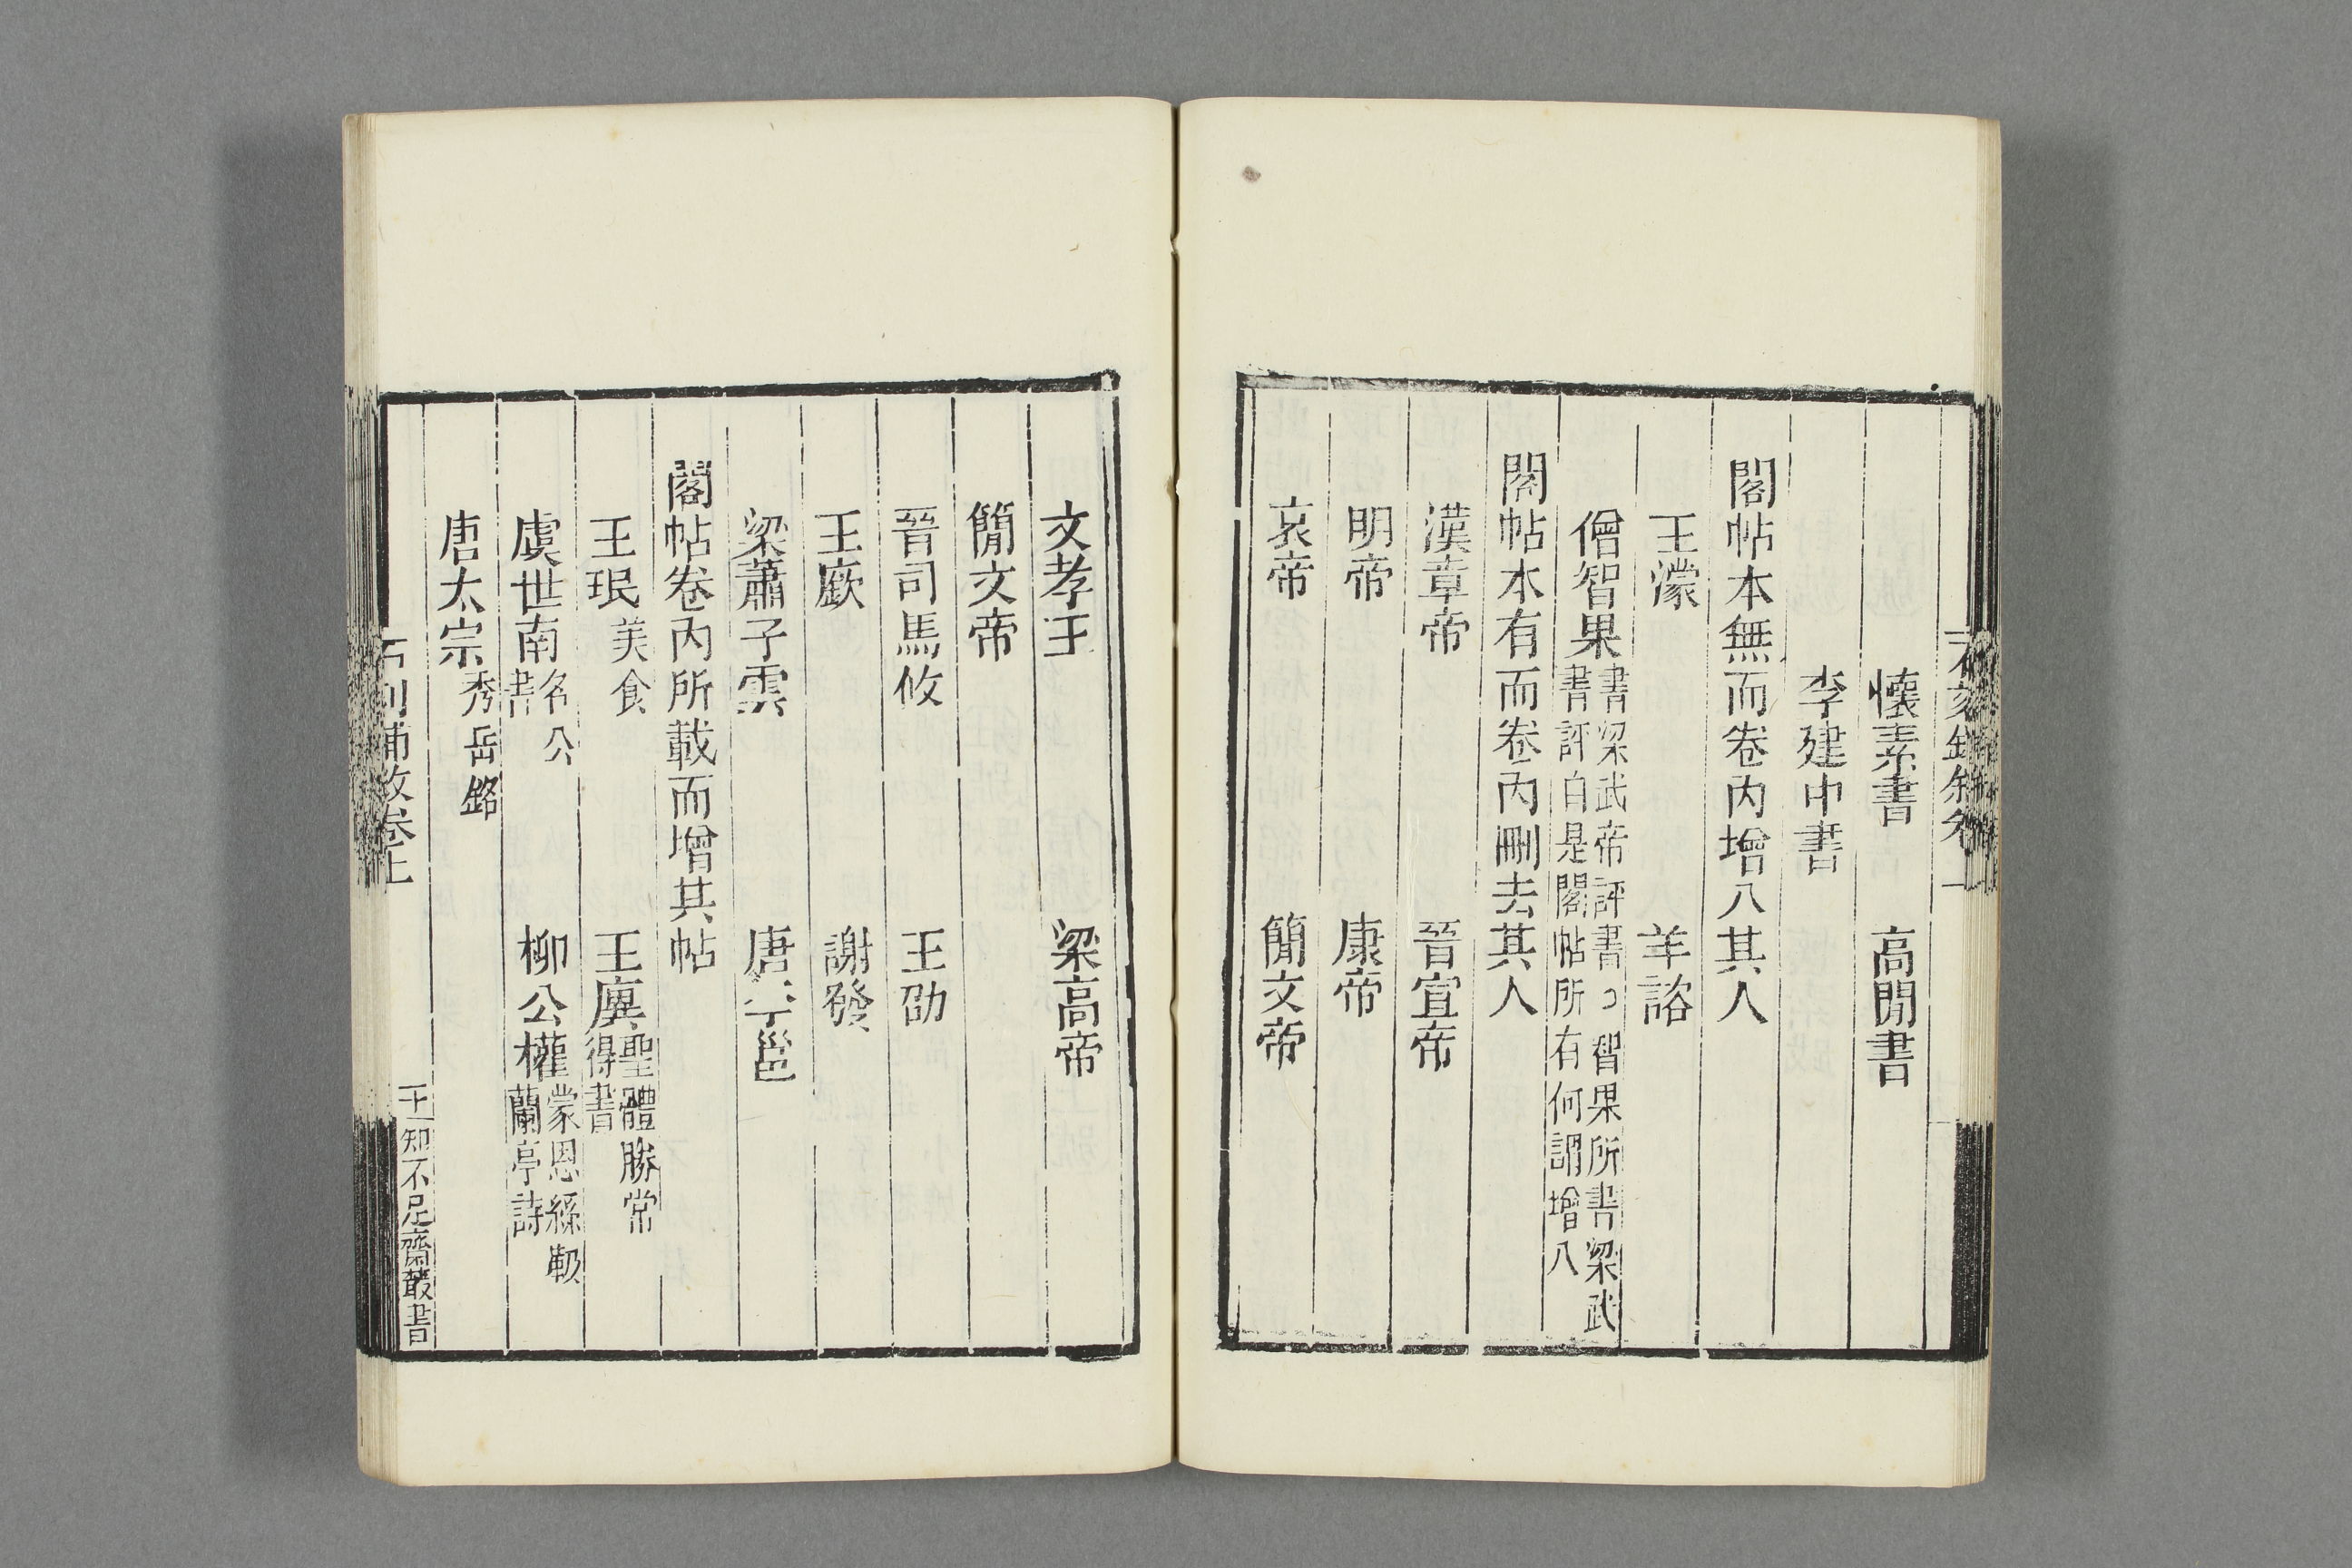 懷素書　高閒書
李建中書
閣帖本無而卷内增入其人
王濛　羊諮
僧智果書梁武帝評書つ智果所書梁武
書評自是閣帖所有何謂增入
閣帖本有而卷内刪去其人
漢章帝　晉宣帝
明帝　康帝
哀帝　簡文帝
文孝王　梁高帝
簡文帝
晉司馬攸　王劭
王廞　謝發
梁蕭子雲　唐 邕
閣帖卷内所載而增其帖
王珉美食　王廙聖體勝常
得書
虞世南名公　柳公權蒙恩繇𫐉
書　蘭亭詩
唐太宗秀岳銘
石刻鋪敘卷上
十一 知不足齋叢書